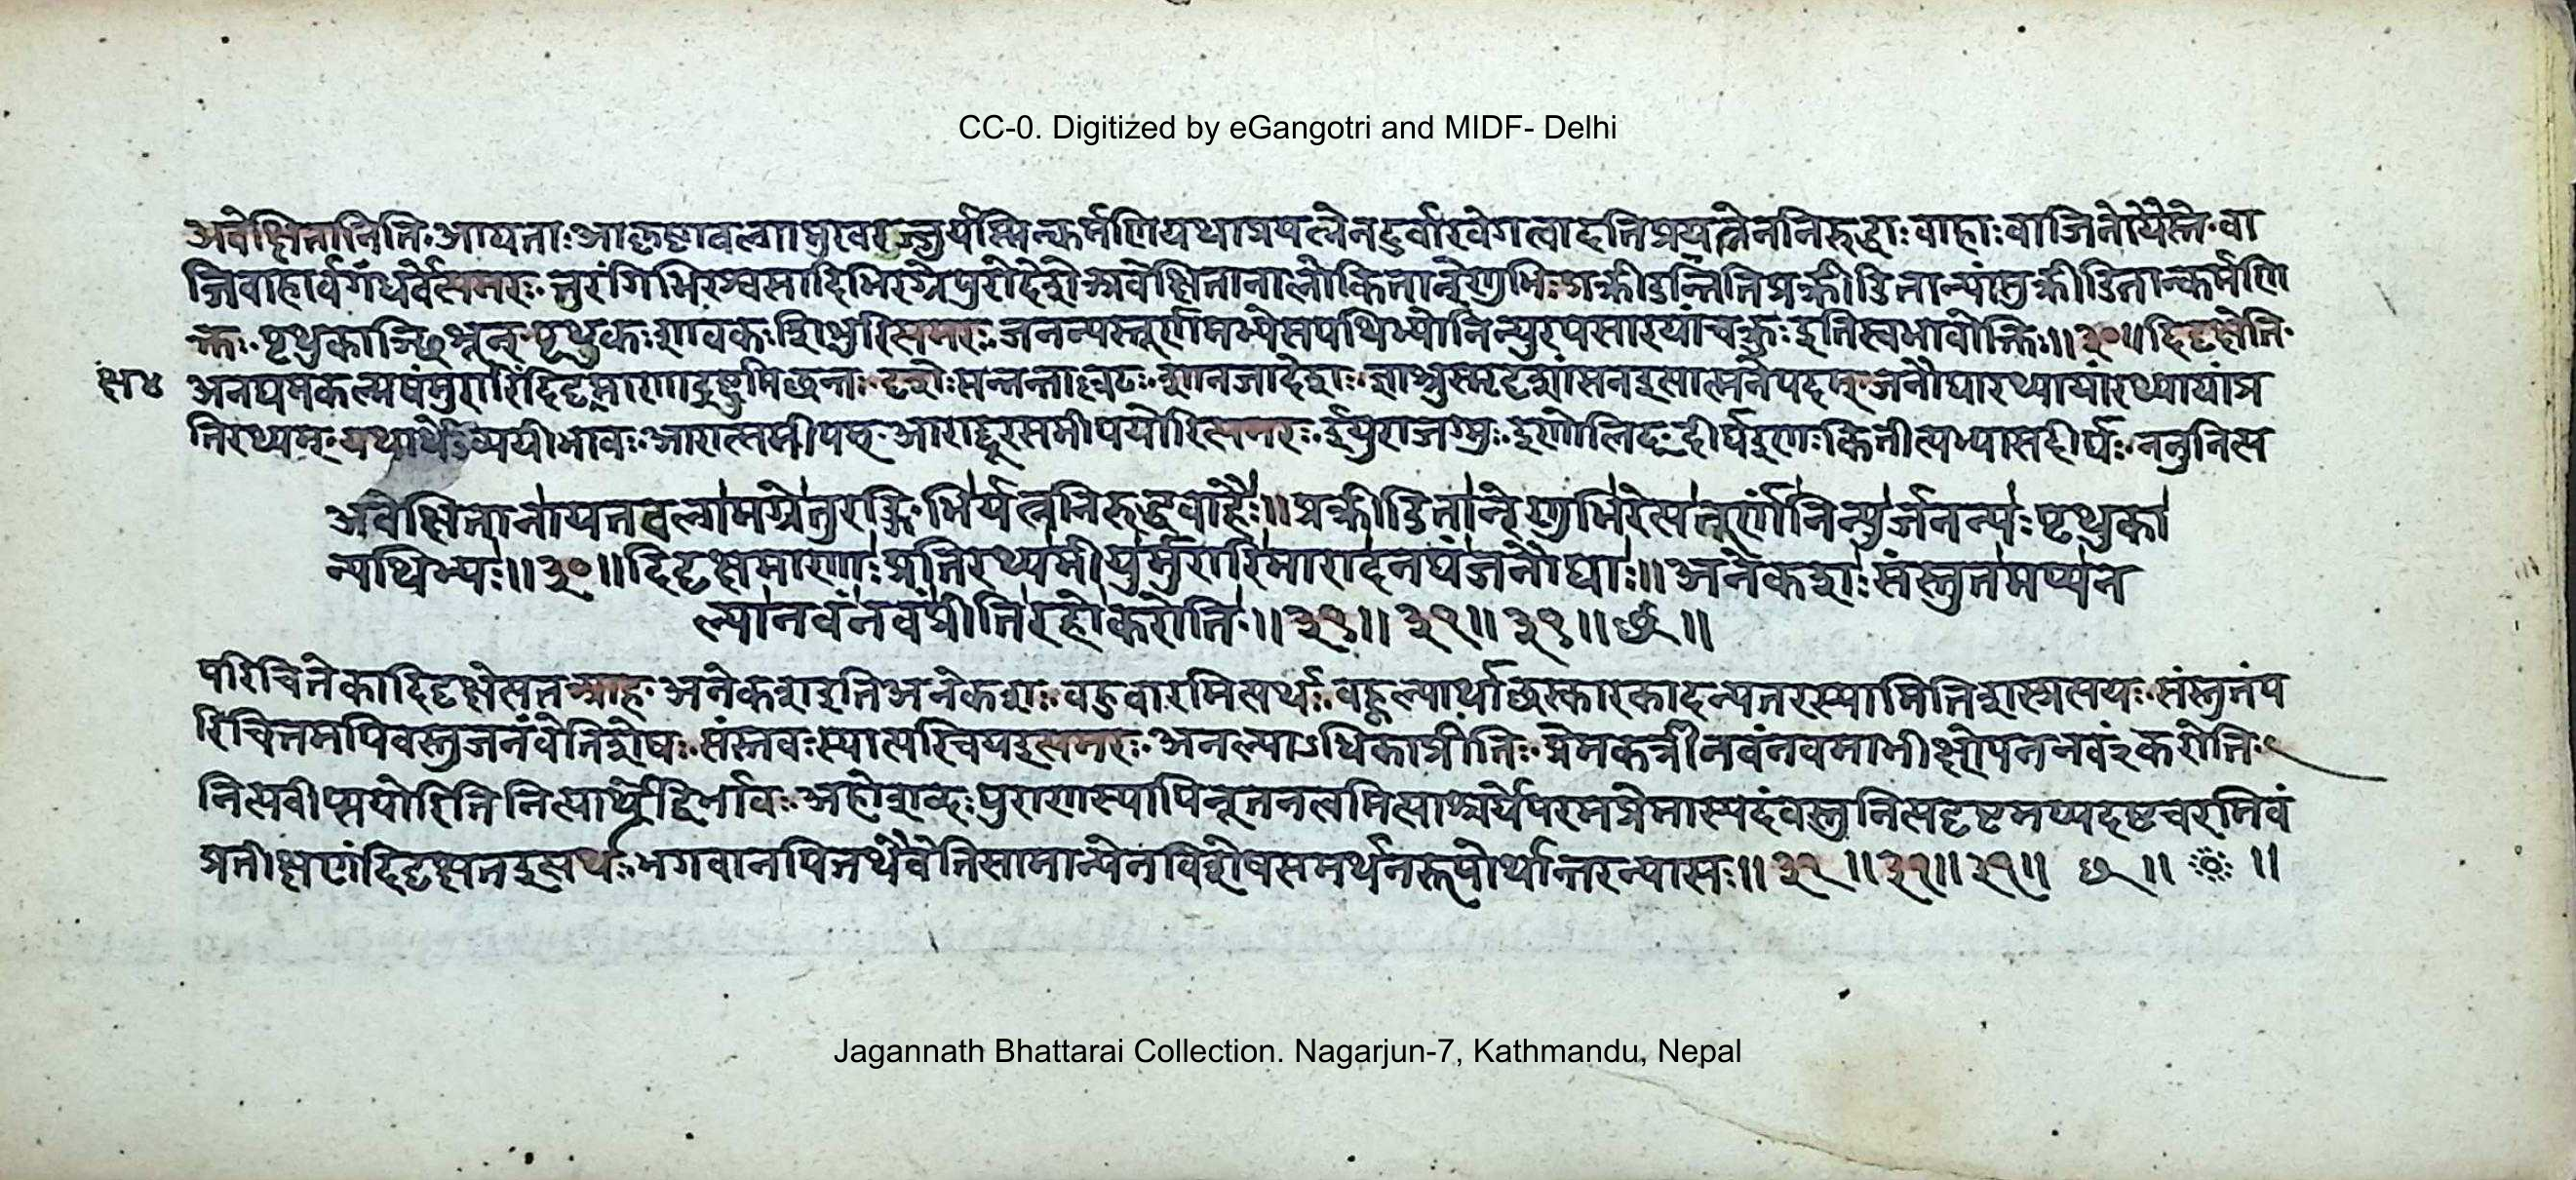 CC-0. Digitized by eGangotri and MIDF- Delhi
अवेक्षितानिति॰आयताःआकृष्टावल्गामुखरज्जुर्यस्मिन्कर्मणियथाप्रयत्नेनदुर्वारवेगत्वादतिप्रयत्नेननिरुद्धाःवाहाःवाजिनोयैस्तैः॰वा
जिवाहार्वगंधर्वेत्यमरः॰तुरंगिभिरश्वसादिभिरग्रेपुरोदेशेअवेक्षितानालोकितान्रेणुभिःप्रक्रीडन्तिनिप्रक्रीडितान्पांसुक्रीडितान्कर्मणि
क्तः॰पृथुकाञ्छिशून्॰पृथुकःशावकःशिशुरित्यमरः॰जनन्यस्तूर्णमभ्येत्यपथिभ्योनिन्युरपसारयांचक्रुःइतिस्वभावोक्तिः॥३०॥दिदृक्षेति॰
क्षा४
अनघमकल्मषंमुरारिंदिदृक्षमाणाद्रष्टुमिच्छन्तः॰दृशेःसन्नन्ताल्लटःशानजादेशः॰ज्ञाश्रुस्मृदृशांसनइत्यात्मनेपदम्॰जनौघारथ्यायांरथ्यायांप्र
तिरथ्यम्॰यथार्थेऽव्ययीभावः॰आरात्समीपम्॰आराद्दूरसमीपयोरित्यमरः॰ईयुराजग्मुः॰इणोलिट्॰दीर्घइणःकितीत्यभ्यासदीर्घः॰ननुनित्य
अवेक्षितानायतवल्गमग्रेतुरङ्गिभिर्यत्ननिरुद्धवाहैः॥प्रक्रीडितान्रेणुभिरेत्यतूर्णंनिन्युर्जनन्यःपृथुका
न्पथिभ्यः॥३०॥दिदृक्षमाणाःप्रतिरथ्यमीयुर्मुरारिमारादनघंजनौघाः॥अनेकशःसंस्तुतमप्यन
ल्पानवंनवंप्रीतिरहोकरोति॥३१॥३१॥३१॥छ॥
परिचितेकादिदृक्षेत्यतआह॰अनेकशइतिअनेकशः॰बहुवारमित्यर्थः॰बह्वल्पार्थाच्छस्कारकादन्यतरस्यामितिशस्प्रत्ययः॰संस्तुतंप
रिचितमपिवस्तुजनंवेतिशेषः॰संस्तवःस्यात्परिचयइत्यमरः॰अनल्पाऽधिकाप्रीतिः॰प्रेमकर्त्रीनवंनवमाभीक्ष्णेयननवं२करोति॰
नित्यवीप्सयोरितिनित्यार्थेद्विर्भावः॰अहोशब्दःपुराणस्यापिनूतनत्वमित्याश्चर्येपरमप्रेमास्पदंवस्तुनित्यदृष्टमप्यदृष्टचरमिवं
प्रतीक्षणंदिदृक्षतइत्यर्थः॰भगवानपितथैवेतिसामान्येनविशेषसमर्थनरूपोर्थान्तरन्यासः॥३१॥३१॥३१॥ छ ॥ ॥
Jagannath Bhattarai Collection. Nagarjun-7, Kathmandu, Nepal